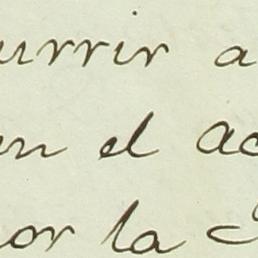 urrir a
en el ac
or la